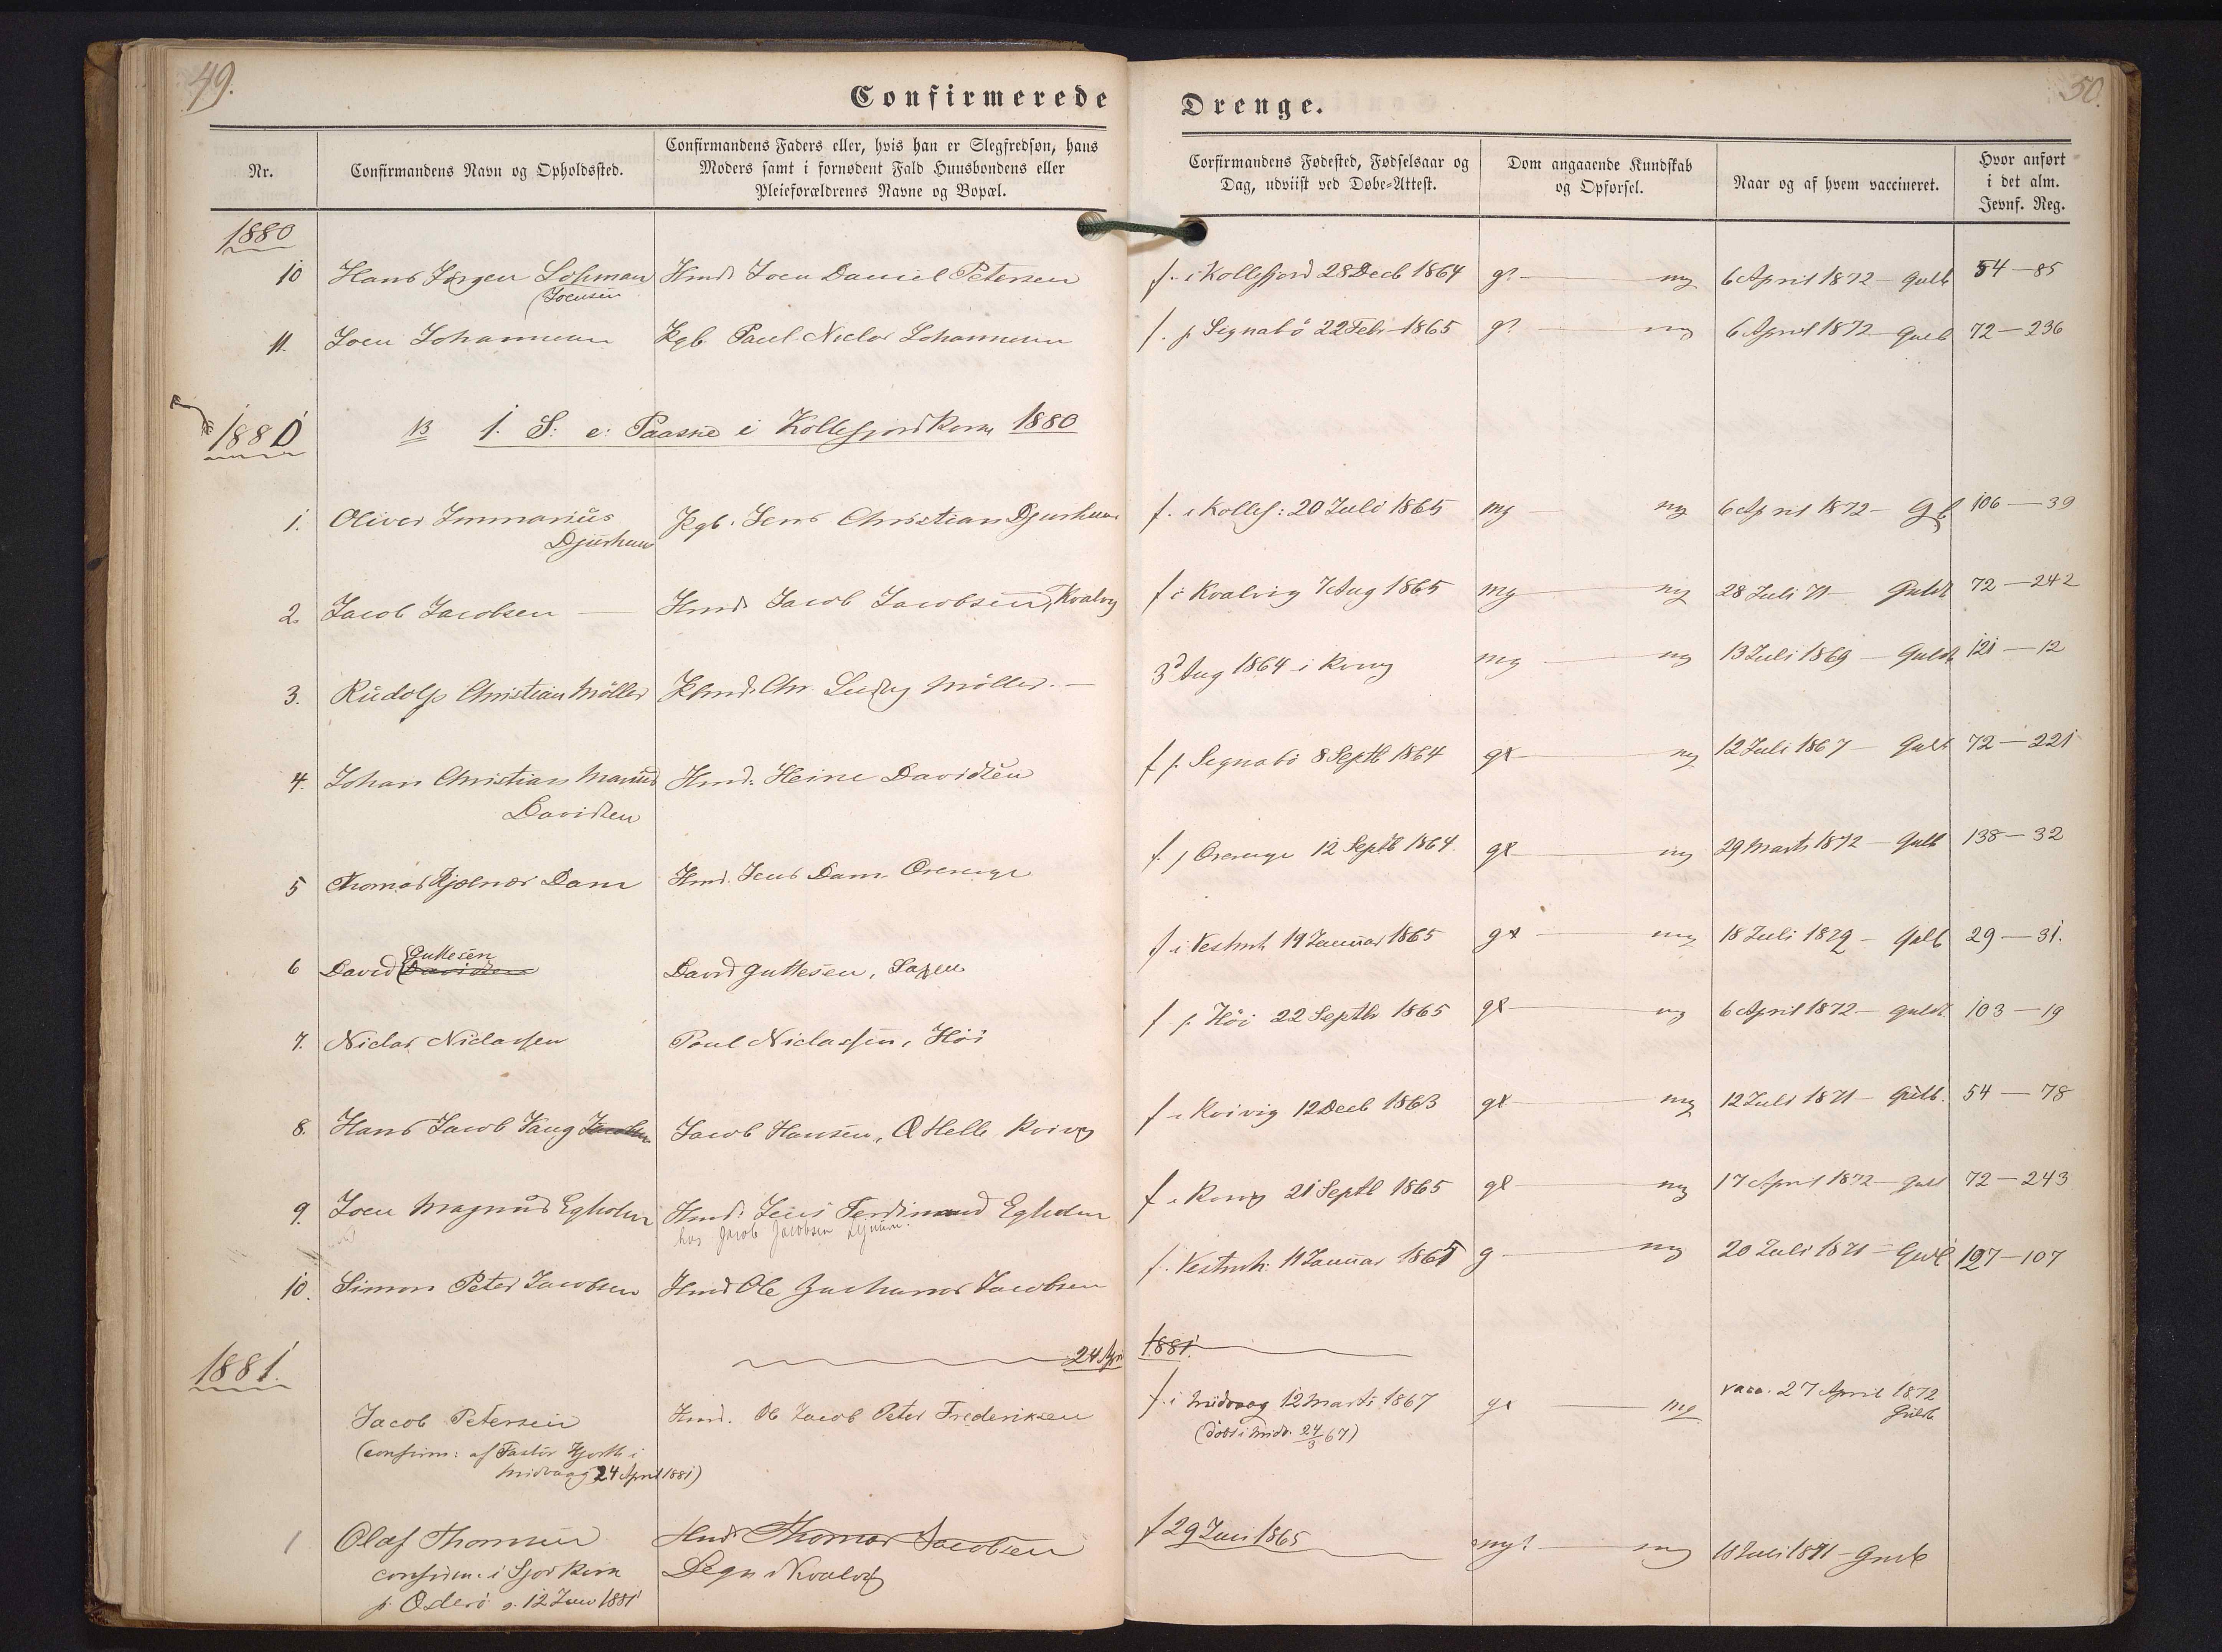 49.
50.
Confirmerede
Drenge.
Nr.
Confirmandens Navn og Opholdssted.
Confirmandens Faders eller, hvis han er Slegfredsøn, hans
Moders samt i fornødent Fald Huusbondens eller
Pleieforældrenes Navne og Bopæl.
Corfirmandens Fødested, Fødselsaar og
Dag, udviist ved Døbe-Attest.
Dom angaaende Kundskab
og Opførsel.
Naar og af hvem vaccineret.
Hvor anført
i det alm.
Jevnf. Reg.
1880
10 Hans Jørgen Johman Hmd. Joen Daniel Petersen f. i Kollefjord 28 Decb 1864 g? mg 6 April 1872 - Guldb 54-85
(Joensen
11. Joen Johannesen Kgb. Paul Niclas Johannesen f. p Signabö 22 Febr 1865 g? mg 6 April 1872 Guldb 72-236
1880 1. S: e: Paaske i Kollefjord Kirke 1880
1. Oliver Immanüs Kgb. Jens Christian Djurhuus f. i Kollef: 20 Juli 1865 mg mg 6 April 1872 - 106-39
Djurhuus
2. Jacob Jacobsen Hmd. Jacob Jacobsen, Kvalvig f i Kvalvig 7 Aug 1865 mg mg 28 Juli 71 - Guldb 72-242
3. Rudolf Christian Möller Chr. Ludvig Möller. 3d Aug 1864 i Kvivig mg mg 13 Juli 1869 - Guldb 121-12
4. Johan Christian Marius Hmd. Heine Davidsen f p. Signabö 8 Septb 1864 gt mg 12 Juli 1867 - Guldb 72-221
Davidsen
5 Thomas Kjølnæs Dam Hmd. Jens Dam Oreringe f. p Oreringe 12 Septb 1864 gt mg 29 Marts 1872 - Guldb 138-32
Guttesen
6 David Davidsen David Guttesen, Saxen f i Vestmh 19 Januar 1865 gt mg 18 Juli 1872 - Guldb 29-31.
7. Niclas Niclassen Poul Niclassen, Höi f p. Höi 22 Septbr 1865 gt mg 6 April 1872 - Guldb 103-19
8. Hans Jacob Jacobsen Jacob Hansen, Kvivig f i Kvivig 12 Decb 1863 gt mg 12 Juli 1871 - Guldb. 54-78
9. Joen Magnus Egholm Hmd. Jens Ferdinand Egholm f i Kvivig 21 Septb 1865 gt mg 17 April 1872 - Guld 72-243
hos Jacob Jacobsen
10. Simon Peter Jacobsen Hmd Ole Zacharias Jacobsen f. Vestmh: 11 Januar 1865 g mg 20 Juli 1871 - Guld 127-107
1881. 24 April 1881.
Jacob Petersen Hmd. Ole Jacob Peter Frederiksen f. i Midvaag 12 Marts 1867 gt mg vacc. 27 April 1872
Guldb
(confirm: af Pastor Hjorth i (döbt i Midv. 24/3 67)
Midvaag 24 April 1881)
1 Olaf Thomsen Hmd Thomas Jacobsen f 29 Juni 1865 mg? mg 18 Juli 1871 - Guldb
confirm: i Sjov Kirke Degn i Kvalvig
p. Österö d. 12 Juni 1881